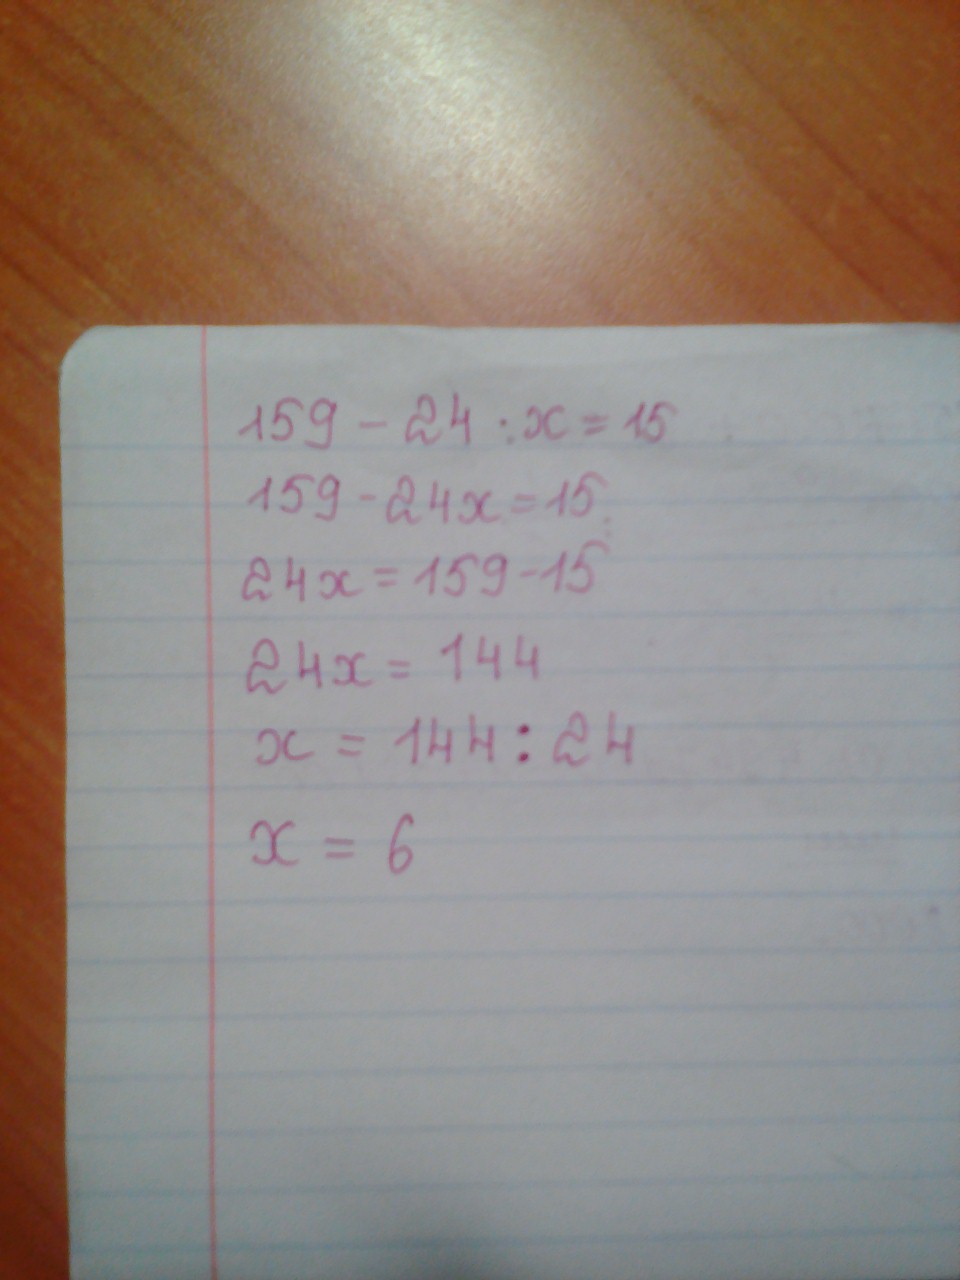 159 - 24 : x = 15
159 - 24x = 15
24x = 159 - 15
24x = 144
x = 144 : 24
x = 6